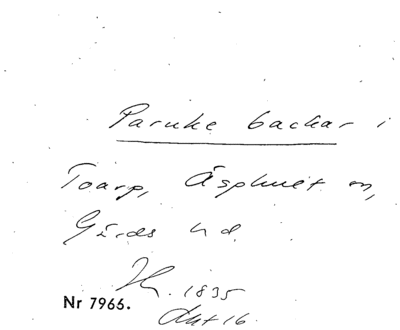 Paruke backar i
Toarp, Äsphult sn,
Gärds hd.
1835
Nr 7966. Akt 16.